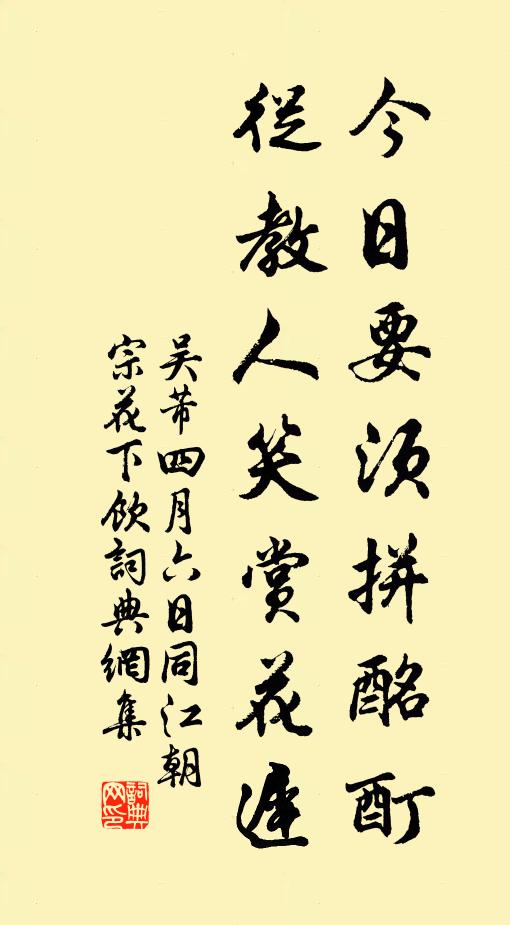 今日要須拼酩酊
從教人笑賞花遲
吴芾四月六日同江朝
宗花下飲詞典網集
詞典网印